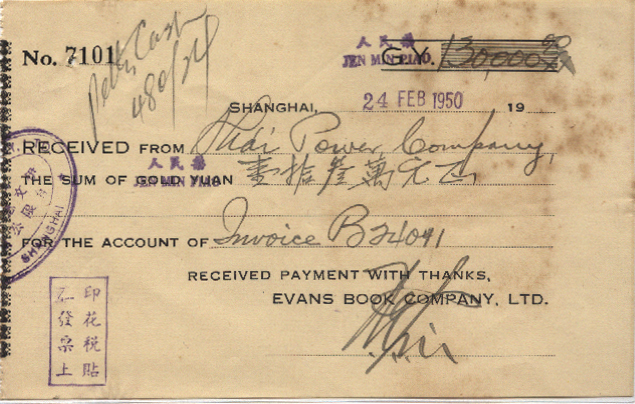 No. 7101
Petty Cash
480/24
人民券
JEN MIN PIAO.
G.Y. 130,000.00
SHANGHAI, 24 FEB 1950 19
RECEIVED FROM Power Company,
人民券
JEN MIN PIAO
THE SUM OF GOLD YUAN 壹拾叁萬元正
SHANGHAI
FOR THE ACCOUNT OF Invoice B24041
RECEIVED PAYMENT WITH THANKS,
EVANS BOOK COMPANY, LTD.
印花稅貼
發票上